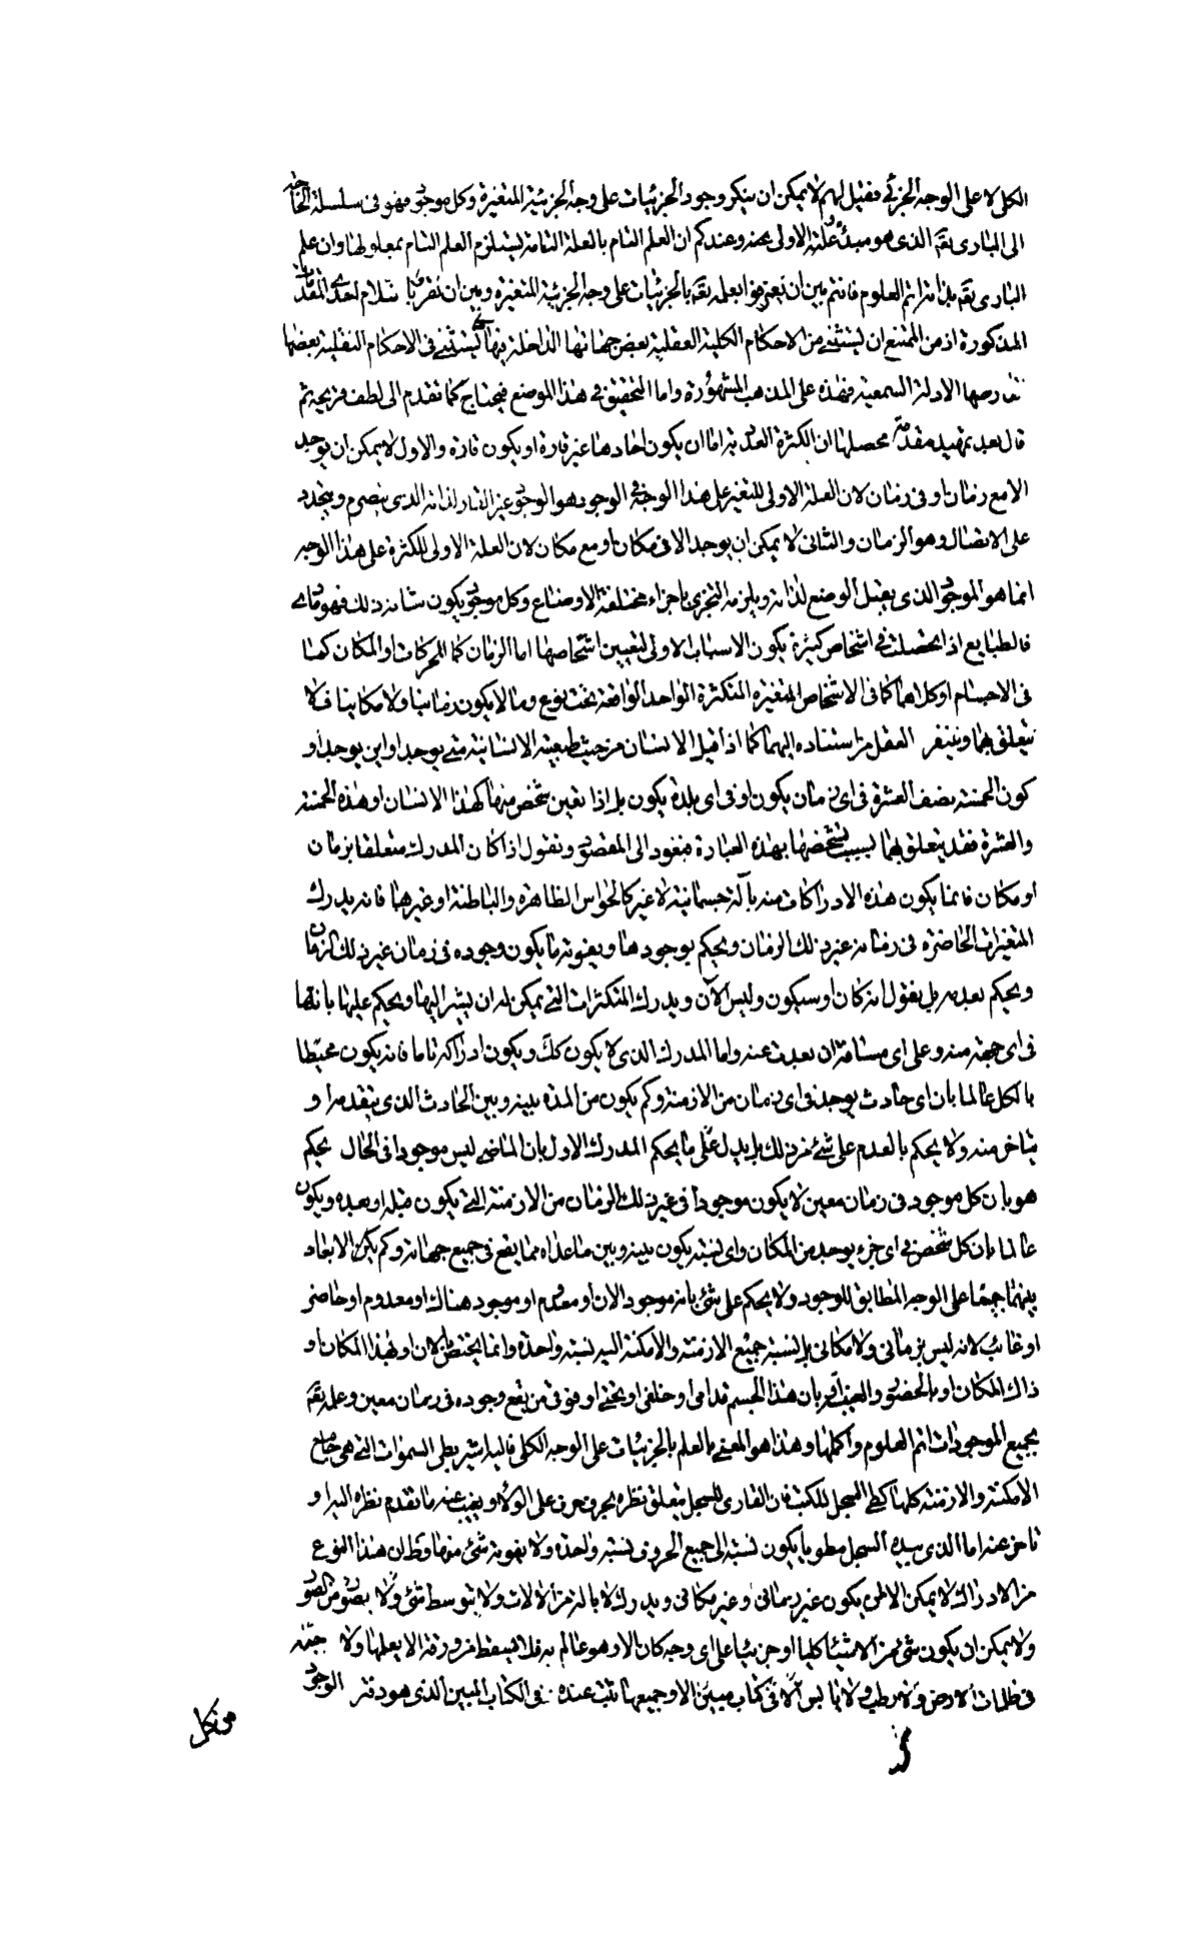 الكلى لا على الوجه الجزئى فقيل لهم لا يمكن ان ينكر وجود الجزئيات على وجه الجزئية المتغيرة وكل موجود فهو فى سلسلة الحاجة
الى البارى تعه الذى هو مبدئه وعلته الاولى عنه وعندكم ان العلم التام بالعلة التامة يستلزم العلم التام بمعلولها وان علم
البارى تعه بذاته اتم العلوم فانتم بين ان تعترفوا بعلمه تعه بالجزئيات على وجه الجزئية المتغيرة وبين ان تقروا احدى المقدمات
المذكورة اذ من الممتنع ان يستثنى من الاحكام الكلية العقلية بعض جهاتها الداخلة فيها كما يستثنى فى الاحكام النقلية بعضها
تعارضها الادلة السمعية فهذه على المذهب المشهورة واما التحقيق فى هذا الموضع فيحتاج كما تقدم الى لطف قريحة ثم
قال بعد تمهيد مقدمة محصلها ان الكثرة العددية اما ان يكون احادها غير قارة او يكون قارة والاول لا يمكن ان يوجد
الا مع زمان او فى زمان لان العلة الاولى للتغير على هذا الوجه فى الوجود هو الموجود غير القار لذاته الذى ينصرم ويتجدد
على الاتصال وهو الزمان والثانى لا يمكن ان يوجد الا فى مكان او مع مكان لان العلة الاولى للكثرة على هذا الوجه
انما هو الموجود الذى يقبل الوضع لذاته ويلزمه التجزى باجزاء مختلفة الاوضاع وكل موجود يكون شانه ذلك فهو مادى
فالطبايع اذا تحصلت فى اشخاص كثيرة يكون الاسباب الاولى لتعيين اشخاصها اما الزمان كما للحركات او المكان كما
فى الاجسام او كلاهما كما فى الاشخاص المتغيره المتكثرة الواحد الواقعة تحت نوع وما لا يكون زمانيا ولا مكانيا فلا
يتعلق بهما ويتنفر العقل من استناده اليهما كما اذا قيل الانسان من حيث طبيعته الانسانية متى يوجد او اين يوجد او
كون الخمسة نصف العشرة فى اى زمان يكون او فى اى بلدة يكون بل اذا تعين شخص منها كهذا الانسان او هذه الخمسة
والعشرة فقد يتعلق بهما بسبب تشخصها بهذه العبارة فنعود الى المقصود ونقول اذا كان المدرك متعلقا بزمان
او مكان فانما يكون هذه الادراكات منه بآلة جسمانية لا غير كالحواس الظاهرة والباطنة او غيرهما فانه يدرك
المتغيرات الحاضرة فى زمانه غير ذلك الزمان ويحكم بوجودها ويفوته ما يكون وجوده فى زمان غير ذلك الزمان
ويحكم بعدمه بل يقول انه كان او سيكون وليس الآن ويدرك المتكثرات التى يمكن له ان يشير اليها ويحكم عليها بانها
فى اى جهة منه وعلى اى مسافة ان بعدت عنه واما المدرك الذى لا يكون كك ويكون ادراكه تاما فانه يكون محيطا
بالكل عالما بان اى حادث يوجد فى اى زمان من الازمنة وكم يكون من المدة بينه وبين الحادث الذى يتقدمه او
يتاخر منه ولا يحكم بالعدم على شئ من ذلك بل بدل على ما يحكم المدرك الاول بان الماضى ليس موجودا فى الحال يحكم
هو بان كل موجود فى زمان معين لا يكون موجودا فى غير ذلك الزمان من الازمنة التى يكون قبله او بعده ويكون
عالما بان كل شخص فى اى جزء يوجد من المكان واى نسبة يكون بينه وبين ما عداه مما يقع فى جميع جهاته وكم يكون الابعاد
بينهما جميعا على الوجه المطابق للوجود ولا يحكم على شئ بانه موجود الان او معدوم او موجود هناك او معدوم او حاضر
او غائب لانه ليس بزمانى ولا مكانى بل نسبة جميع الازمنة والامكنة اليه نسبة واحدة وانما يختص بالان او بهذا المكان او
ذاك المكان او بالحضور والغيبة او بان هذا الجسم قدامى او خلفى او تحتى او فوقى من يقع وجوده فى زمان معين وعلمه تعه
بجميع الموجودات اتم العلوم واكملها وهذا هو المعنى بالعلم بالجزئيات على الوجه الكلى فاليه اشير بطى السموات التى هى جامع
الامكنة والازمنة كلها كطى السجل للكتب فان القارى للسجل يتعلق نظره بحرف حرف على الولاء ويغيب عنه ما تقدم نظره اليه او
تاخر عنه اما الذى بيده السجل مطويا يكون نسبته الى جميع الحروف نسبة واحدة ولا يفوته شئ منها وظ ان هذا النوع
من الادراك لا يمكن الا لمن يكون غير زمانى وغير مكانى ويدرك لا بالة من الالات ولا بتوسط شئ ولا بصورة من الصور
ولا يمكن ان يكون شئ من الاشياء كليا او جزئيا على اى وجه كان الا وهو عالم به فلا تسقط من ورقة الا يعلمها ولا حبة
فى ظلمات الارض ولا رطب ولا يابس الا فى كتاب مبين الا وجميعها تثبت عنده فى الكتاب المبين الذى هو دفتر الوجود